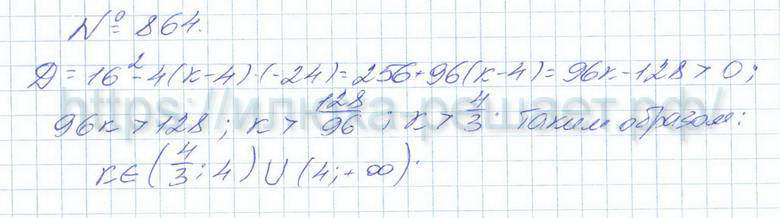 № 864.
Д = 16² - 4(к-4)·(-24) = 256 + 96(к-4) = 96к - 128 > 0 ;
96к > 128 ; к > 128/96 ; к > 4/3. Таким образом:
к ∈ (4/3 ; 4) ∪ (4 ; + ∞).
https://илюха-решает.рф/